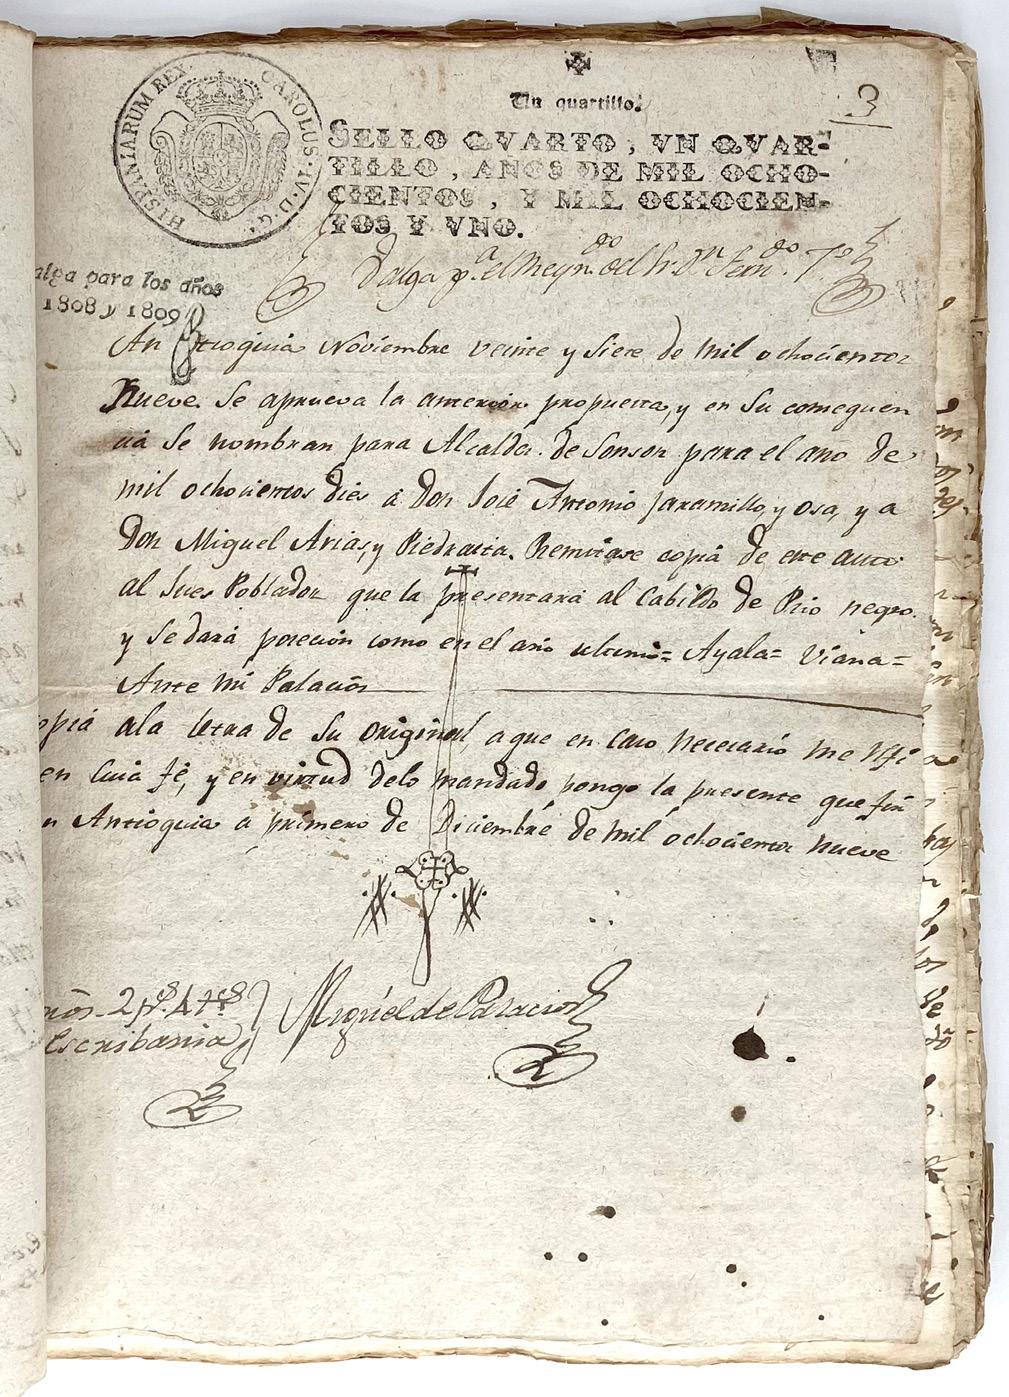 HISPANIARUM REX. CAROLUS·IV·D·G·
3
Un quartillo.
SELLO QVARTO, VN QVAR-
TILLO, AÑOS DE MIL OCHO-
CIENTOS, Y MIL OCHOCIEN-
TOS Y VNO.
Valga pᵃ. el Reynᵈᵒ. del Sr. Dⁿ. Fernᵈᵒ. 7º
alga para los años
1808 y 1809
En Antioquia Noviembre veinte y siete de mil ochocientos
Nueve. Se aprueva la anterior propuesta, y en su conseguen
cia se nombran para Alcaldes de Sonson para el ano de
mil ochocientos dies á Don José Antonio Jaramillo, y Osa, y a
Don Miguel Arias, y Piedraita. Remitase copia de este auto
al Jues Poblador que la presentará al Cabildo de Rio negro.
y se dará poseción como en el año ultimo= Ayala= Viana=
Ante mi Palacios
opia ala letra de su original, a que en caso necesario me refi
en cuia fé, y en virtud delo mandado pongo la presente que firⁿ
n Antioquia á primero de Diciembre de mil ochocientos nueve
2 pˢ. 4 rˢ
Escribania
Miguel de Palacios